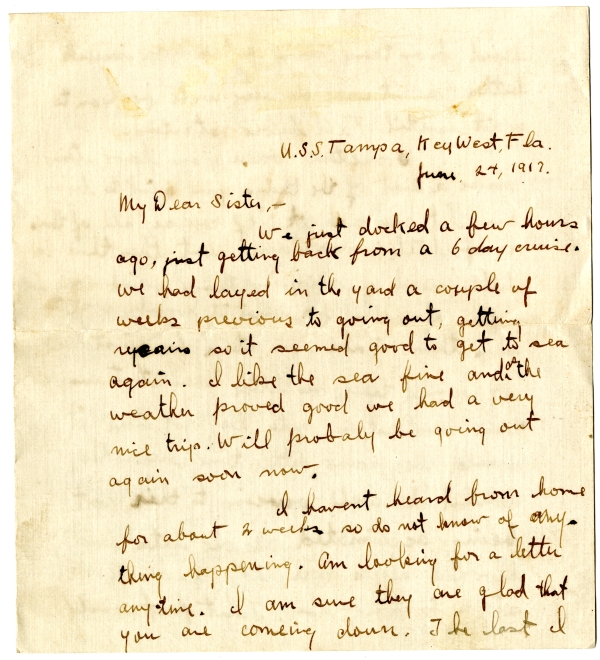 U.S.S. Tampa, Key West, Fla.
June. 24, 1917.
My Dear Sister,-
We just docked a few hours
ago, just getting back from a 6 day cruise.
We had layed in the yard a couple of
weeks previous to going out, getting
repairs so it seemed good to get to sea
again. I like the sea fine and as the
weather proved good we had a very
nice trip. Will probaly be going out
again soon now.
I havent heard from home
for about 2 weeks so do not know of any-
thing happening. Am looking for a letter
anytime. I am sure they are glad that
you are coming down. The last I